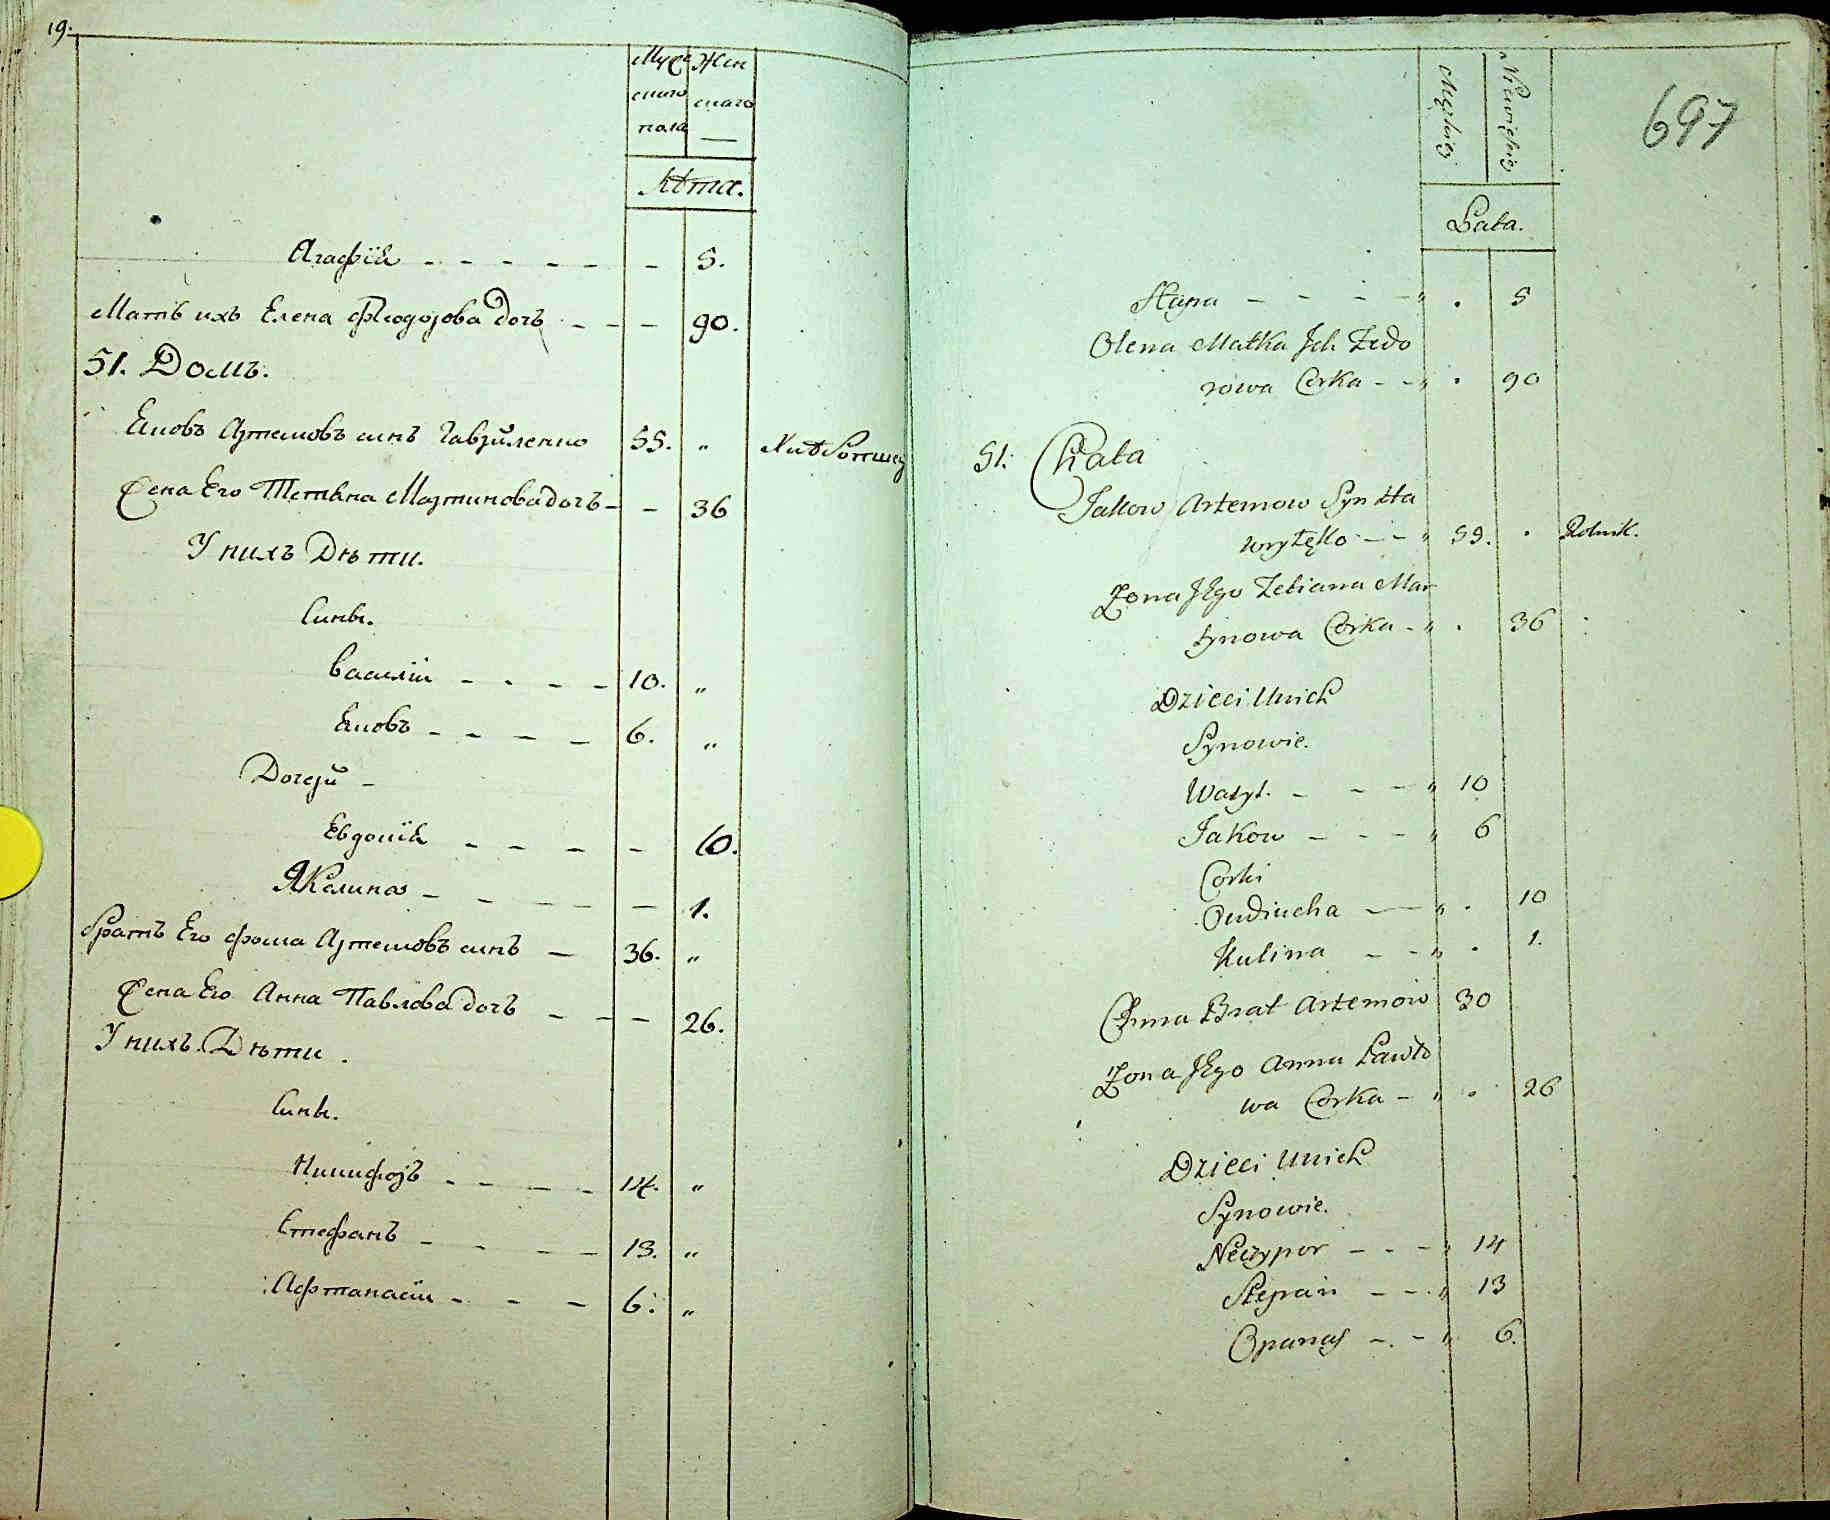 19.
Муже Жен
скаго скаго
пола —
Лѣта.
Агафія - - - - - - 5.
Мать ихъ Елена Фѣодорова дочь - - - 90.
51. Домъ.
Яковъ Артемовъ синъ Гавриленко 55. „ Хлѣбопашец
Жена Его Тетяна Мартинова дочь - - 36
У нихъ Дѣти.
Сины.
Василій - - - - 10. „
Яковъ - - - - 6. „
Дочери -
Евдокія - - - - - 10.
Акилина - - - - - 1.
Братъ Его Фома Артемовъ синъ — 36. „
Жена Его Анна Павлова дочь - - - 26.
У нихъ Дѣти.
Сины.
Никифоръ - - - - 14. „
Стефанъ - - - - 13. „
Афтанасій - - - 6. „
697
Męzkiey Niewieśkiey
Lata.
Hapa - - - - „ . 5
Olena Matka Jch Fedo
rowa Corka - - „ . 90
51. Chata
Jakow Artemow Syn Ha
wryłęko - - „ 59. . Rolnik.
Żona Jego Tetiana Mar
tynowa Corka - „ . 36
Dzieci Unich
Synowie.
Wasyl. - - - „ 10
Jakow - - - „ 6
Corki
Oudiucha — - „ . 10
Kulina - - „ . 1.
Choma Brat Artemow 30
Żona Jego Anna Pawło
wa Corka - „ . 26
Dzieci Unich
Synowie.
Neczypor - - - „ 14
Stepan - - - „ 13
Opanas - - „ 6.